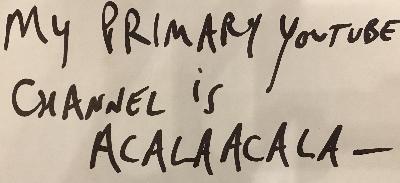 My PRIMARY YOUTUBE
CHANNEL is
ACALAACALA —